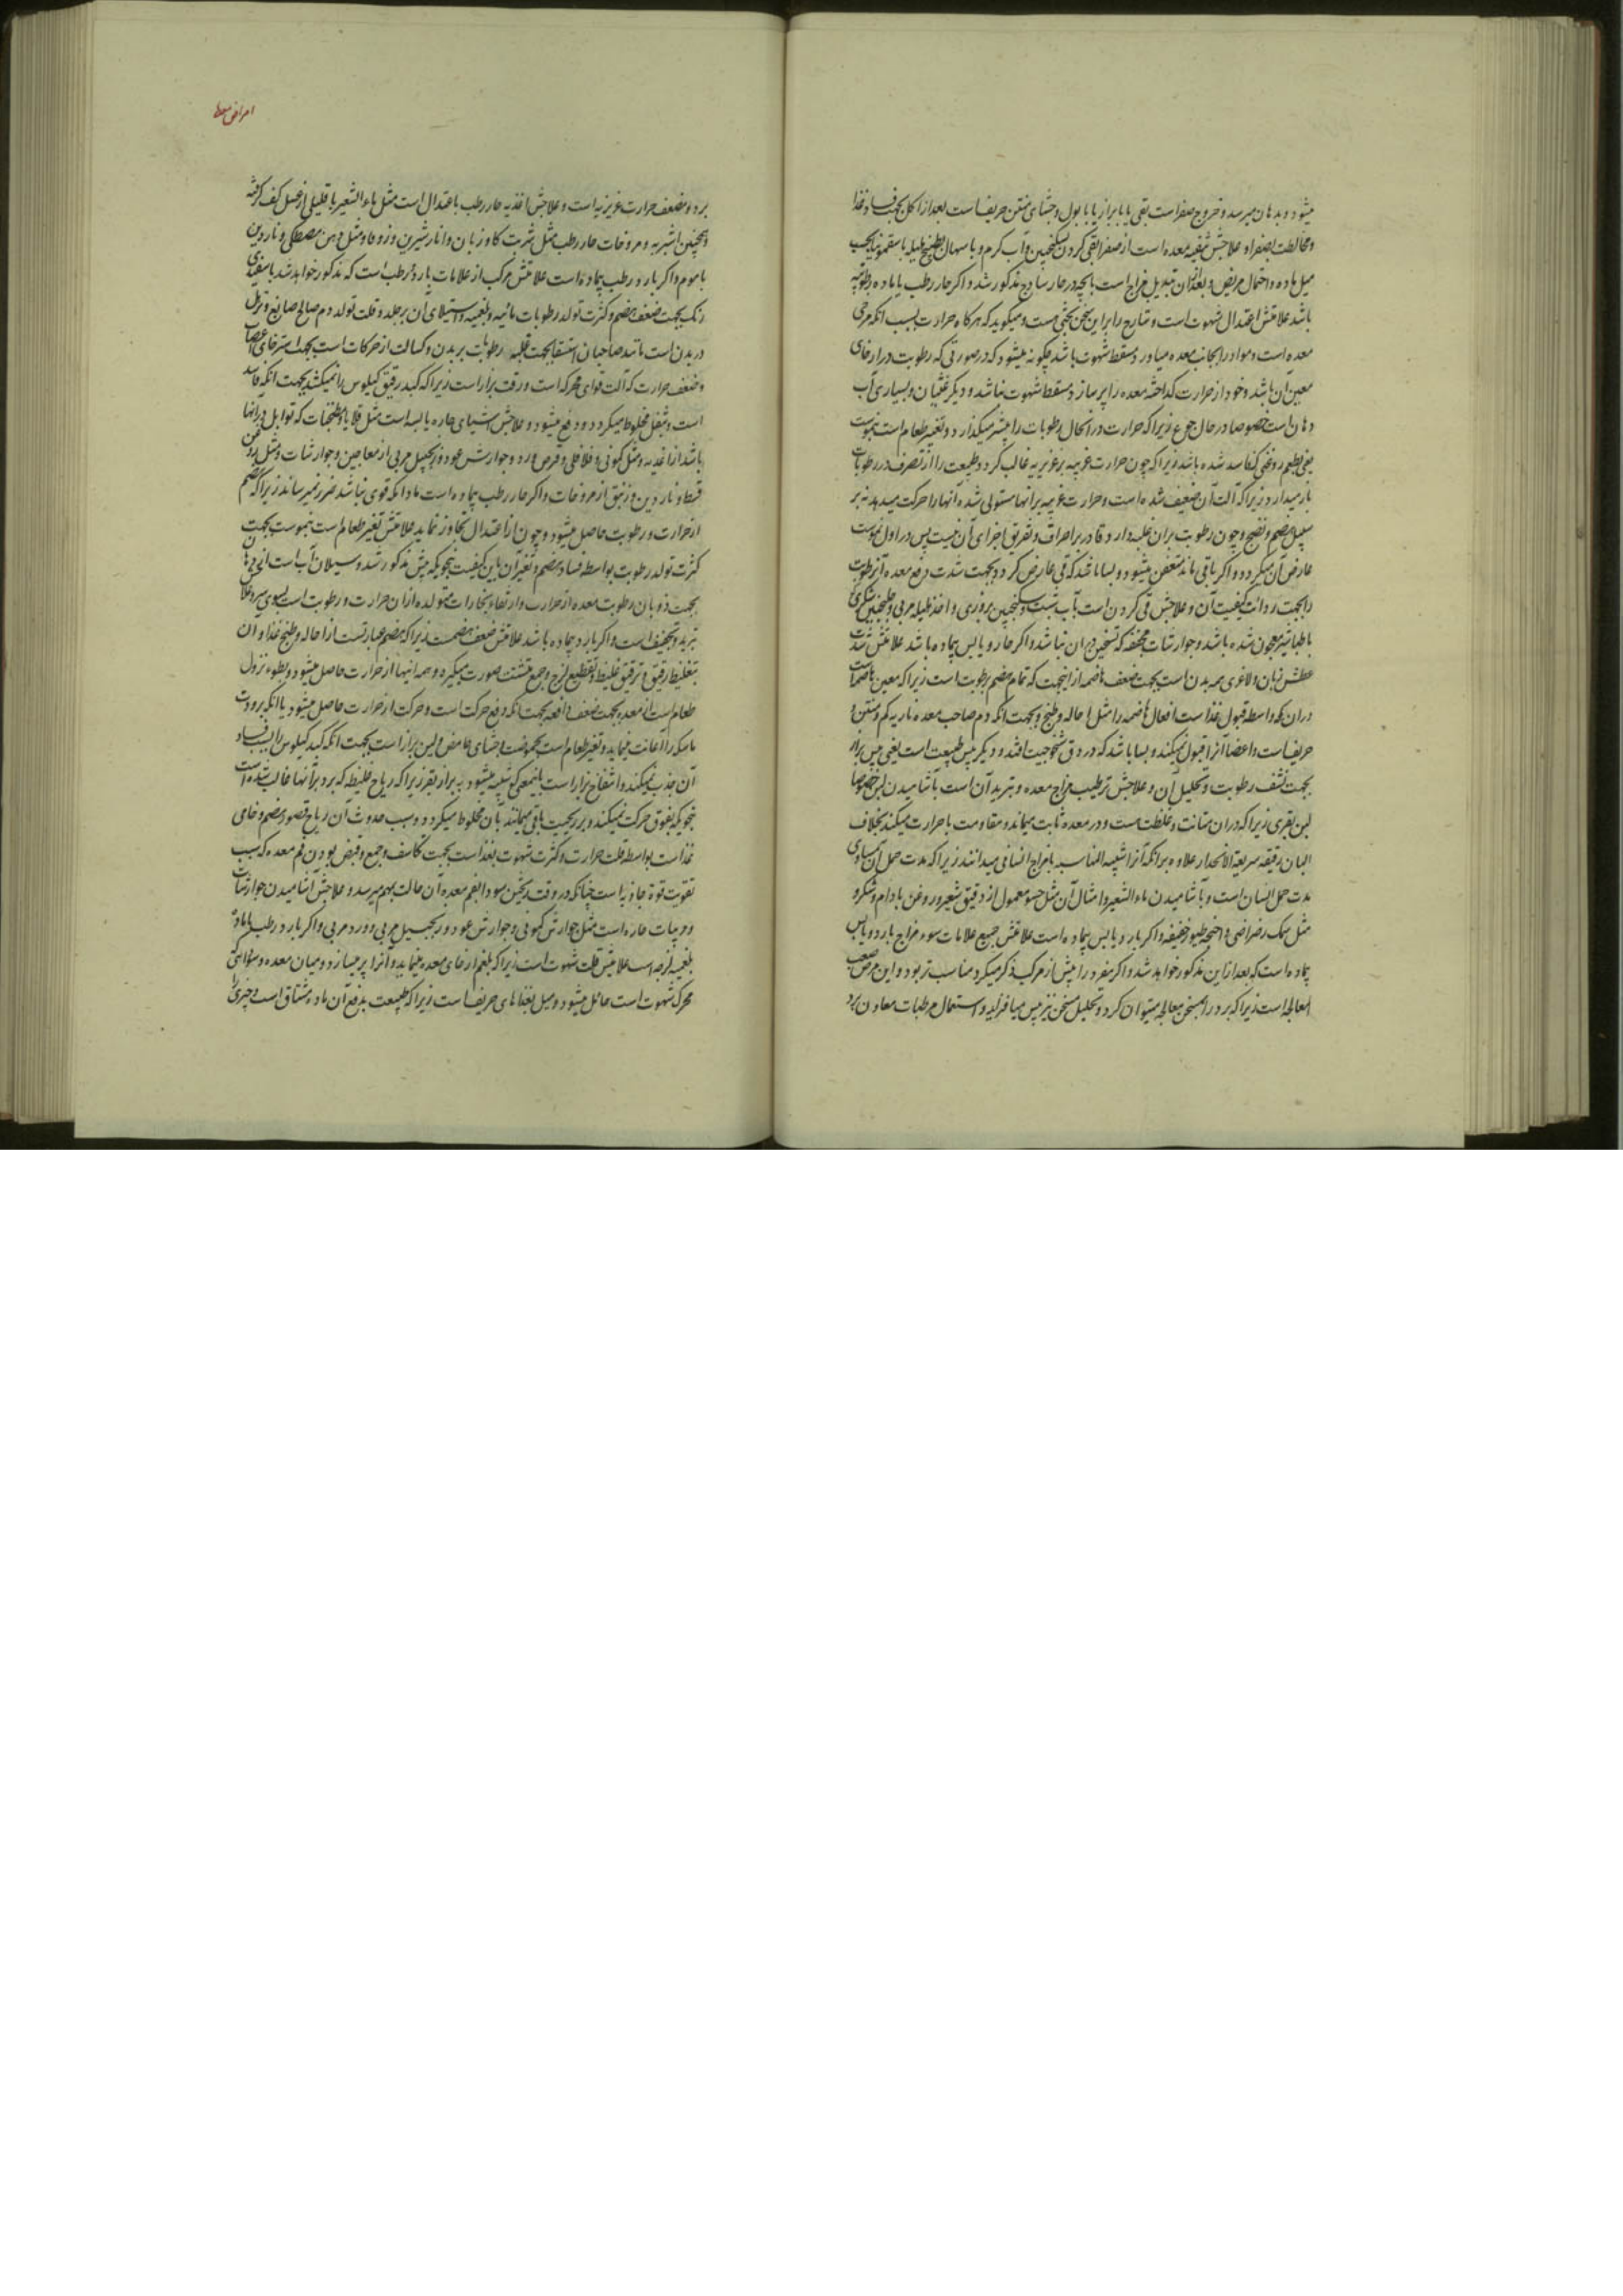 میشود و بدهان میرسد و خروج صفراست بقی یا ببراز یا ببول و جشای منتن حریف است بعد از اکل بجهت فساد غذا
و مخالطت بصفرا و علاجش تنقیه معده است از صفرا بقی کردن بسکنجبین و آب گرم و یا سهال بطبیخ هلیله یا سقمونیا بحسب
میل ماده و احتمال مریض و بعد از آن تبدیل مزاج است بانچه در حار ساذج مذکور شد و اگر حار رطب با ماده رطوبیه
باشد علامتش اعتدال شهوت است و شارح را بر این سخن بحثی هست و میگوید که هرگاه حرارت بسبب آنکه مرخی
معده است و مواد را بجانب معده میاورد و مسقط شهوت باشد چگونه میشود که در صورتی که رطوبت در ارخای
معین آن باشد و خود از حرارت گداخته معده را پر سازد مسقط شهوت نباشد و دیگر غثیان و بسیاری آب
دهان است خصوصا در حال جوع زیرا که حرارت در آنحال رطوبات را بیشتر میگذارد و تغیر طعام است بزهومت
یعنی بطعم روغنی که فاسد شده باشد زیرا که چون حرارت غریبه بر غریزیه غالب گردد طبیعت را از تصرف در رطوبات
باز میدارد زیرا که آلت آن ضعیف شده است و حرارت غریبه بر انها مستولی شده انها را حرکت میدهد نه بر
سبیل هضم و نضج و چون رطوبت بر ان غلبه دارد قادر بر احراق و تفریق اجزای آن نیست پس در اول زهومت
عارض آن میگردد و اگر باقی ماند متعفن میشود و بسا باشد که قی عارض گردد بجهت شدت دفع معده آنرطوبت
را بجهت ردائت کیفیت آن و علاجش قی کردن است بآب شبت و سکنجبین بزوری و اخذ هلیله مربی و جلنجبین شکری
با طباشیر معجون شده باشد و جوارشات مجففه که تسخین در ان نباشد و اگر حار و یابس بیماده باشد علامتش شدت
عطش زبان و لاغری همه بدن است بجهت ضعف هاضمه از اینجهت که تمام هضم برطوبت است زیرا که معین هاضمه است
در ان بکه واسطه قبول غذا ست افعال هاضمه را مثل احاله و طبخ و بجهت آنکه دم صاحب معده ناریه کم و منتن و
حریف است و اعضا آنرا قبول نمیکنند و بسا باشد که در دق شیخوخیت افتد و دیگر یبس طبیعت است یعنی یبس براز
بجهت نشف رطوبت و تحلیل آن و علاجش ترطیب مزاج معده و تبرید آن است بآشامیدن لبن خصوصا
لبن بقری زیرا که در ان متانت و غلظت هست و در معده ثابت میماند و مقاومت با حرارت میکند بخلاف
البان رقیقه سریعة الانحدار علاوه بر آنکه آنرا شبیه المناسبه بمزاج انسانی میدانند زیرا که مدت حمل آن مساوی
مدت حمل انسان است و بآشامیدن ماء الشعیر و امثال آن مثل حسو معمول از دقیق شعیر و روغن بادام و شکر و
مثل سمک رضراضی و اجنحه طیور خفیفه و اگر بارد و یابس بیماده است علامتش جمیع علامات سوء مزاج بارد و یابس
بیماده است که بعد از این مذکور خواهد شد و اگر مفرد را پیش از مرکب ذکر میکرد مناسب تر بود و این مرض صعب
المعالجه است زیرا که برد را بمسخن معالجه میتوان کرد و تحلیل مسخن نیز یبس میافزاید و استعمال مرطبات معاون برد
امراض معده
برد و مضعف حرارت غریزیه است و علاجش اغذیه حار رطب باعتدال است مثل ماء الشعیر با قلیلی از عسل کف گرفته
و همچنین اشربه و مروخات حار رطب مثل شربت گاو زبان و انار شیرین و زوفا و مثل دهن مصطکی و ناردین
با موم و اگر بارد رطب بیماده است علامتش مرکب از علامات بارد و رطب است که مذکور خواهد شد با سفیدی
رنگ بجهت ضعف هضم و کثرت تولد رطوبات مائیه و بلغمیه و استیلای آن بر جلد و قلت تولد دم صالح صابغ و ترهل
در بدن است مانند صاحبان استسقا بجهت غلبه رطوبات بر بدن و کسالت از حرکات است بجهت استرخای اعصاب
و ضعف حرارت که آلت قوای محرکه است و رقت براز است زیرا که کبد رقیق کیلوس را نمیکشد بجهت آنکه فاسد
است و بثفل مخلوط میگردد و دفع میشود و علاجش اشیای حاره یابسه است مثل قلایا و مطنجات که توابل در آنها
باشد از اغذیه و مثل کمونی و فلافلی و قرص ورد و جوارش عود و زنجبیل مربی از معاجین و جوارشات و مثل روغن
قسط و ناردین و زنبق از مروخات و اگر حار رطب بیماده است مادامکه قوی نباشد ضرر نمیرساند زیرا که هضم
از حرارت و رطوبت حاصل میشود و چون از اعتدال تجاوز نماید علامتش تغیر طعام است بزهومت بجهت
کثرت تولد رطوبت بواسطه فساد هضم و تغیر آن باین کیفیت بنحویکه پیش مذکور شد و سیلان آب است از دهان
بجهت ذوبان رطوبت معده از حرارت و ارتفاع بخارات متولده از ان حرارت و رطوبت است بسوی سر و علاجش
تبرید و تجفیف است و اگر بارد بیماده باشد علامتش ضعف هضمست زیرا که هضم عبارتست از احاله و طبخ غذا و ان
بتغلیظ رقیق و ترقیق غلیظ و تقطیع لزج و جمع متشتت صورت میگیرد و همه اینها از حرارت حاصل میشود و بطوء نزول
طعام است از معده بجهت ضعف دافعه بجهت آنکه دفع حرکت است و حرکت از حرارت حاصل میشود با آنکه برودت
ماسکه را اعانت مینماید و تغیر طعام است بحموضت با جشای حامض و لین براز است بجهت آنکه کبد کیلوس را بسبب فساد
آن جذب نمیکند و انتفاخ براز است باینمعنی که شبیه میشود به براز بقر زیرا که ریاح غلیظه که برد بر آنها غالب شده است
بنحویکه بفوق حرکت نمیکنند و بر ریحیت باقی میمانند بان مخلوط میگردد و سبب حدوث آن ریاح قصور هضم و خامی
غذاست بواسطه قلت حرارت و کثرت شهوت بغذا است بجهت تکاثف و جمع و قبض بودن فم معده که سبب
تقویت قوة جاذبه است چنانکه در وقت ریختن سودا بفم معده آن حالت بهم میرسد و علاجش آشامیدن جوارشات
و مربیات حاره است مثل جوارش کمونی و جوارش عود و زنجبیل مربی و ورد مربی و اگر بارد رطب با ماده
بلغمیه لزجه است علامتش قلت شهوت است زیرا که بلغم ارخای معده مینماید و آنرا پر میسازد و میان معده و سودائی که
محرک شهوت است حائل میشود و میل بغذاهای حریف است زیرا که طبیعت بدفع آن ماده مشتاق است و چیزی را